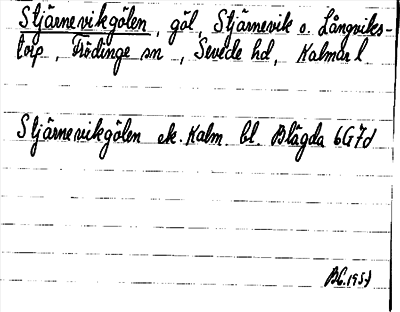 Stjärnevikgölen, göl, Stjärnevik o. Långviks-
torp, Frödinge sn, Sevede hd, Kalmar l
Stjärnevikgölen ek. Kalm. bl. Blägda 6G7d